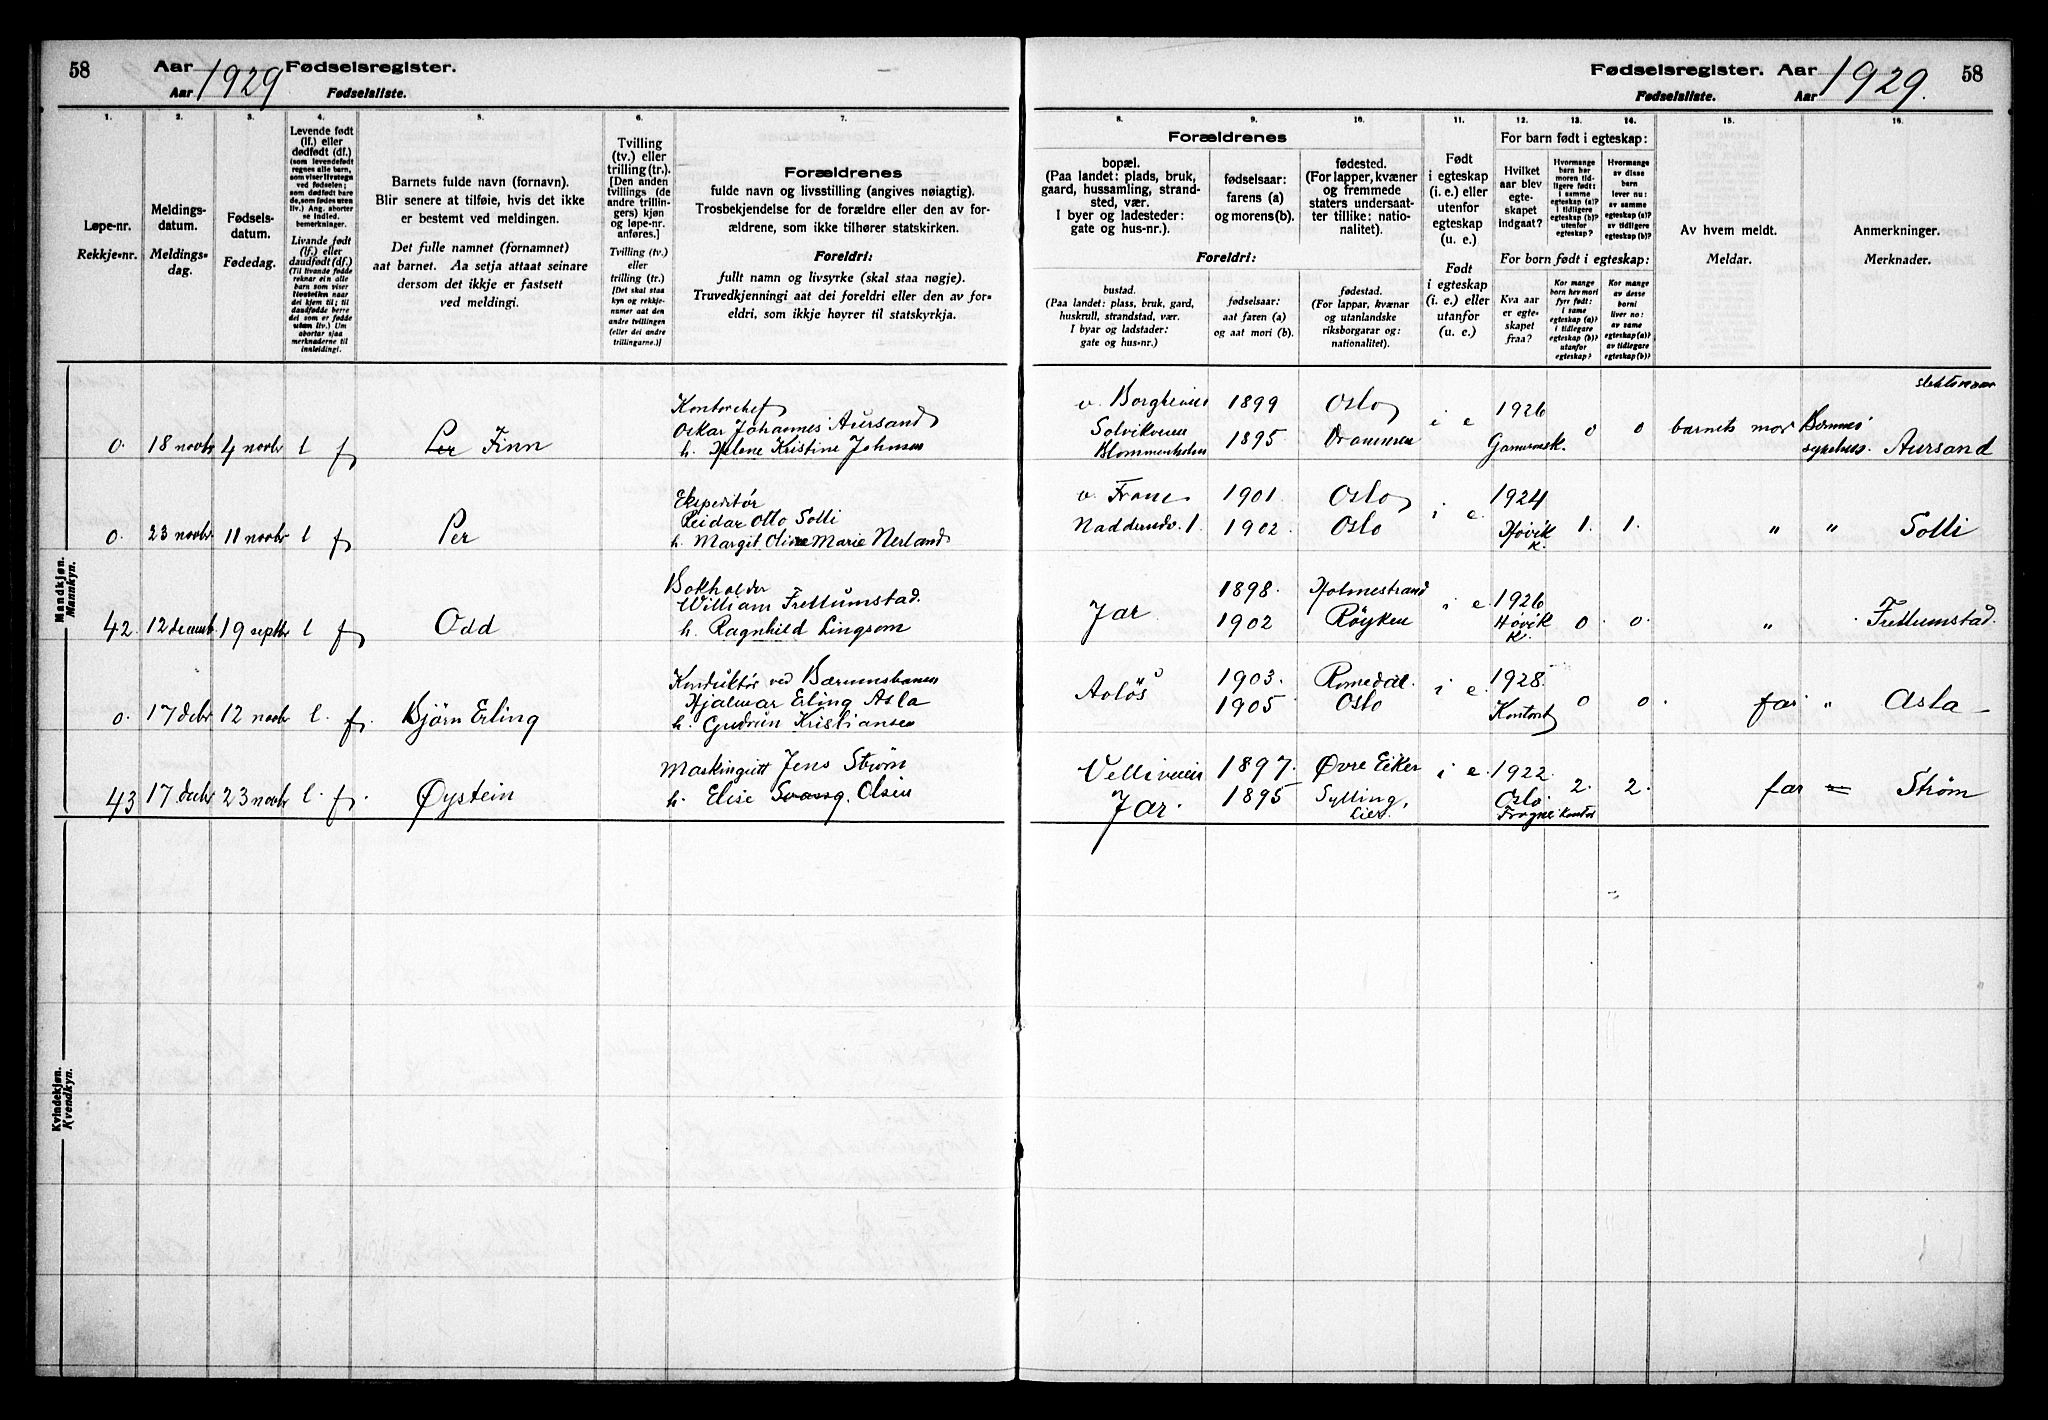 58 Aar 1929 Fødselsregister.
Aar Fødselsliste.
Fødselsregister. Aar 1929. 58
Fødselsliste. Aar
1. 2. 3. 4. 5. 6. 7.
Løpe-nr.
Rekkje-nr.
Meldings-
datum.
Meldings-
dag.
Fødsels-
datum.
Fødedag.
Levende født
(lf.) eller
dødfødt (df.)
(som levendefødt
regnes alle barn,
som viser livstegn
ved fødselen;
som dødfødt bare
de, som fødes uten
liv.) Ang. aborter
se indled.
bemerkninger.
Livande født
(lf.) eller
daudfødt (df.)
(Til livande fødde
reknar ein alle
barn som viser
livsteikn naar
dei kjem til; til
daudfødde berre
dei som er fødde
utan liv.) Um
abortar s/aa
merknaderne til
innleiding!
Barnets fulde navn (fornavn).
Blir senere at tilføie, hvis det ikke
er bestemt ved meldingen.
Det fulle namnet (fornamnet)
aat barnet. Aa setja attaat seinare
dersom det ikkje er fastsett
ved meldingi.
Tvilling
(tv.) eller
trilling (tr.)
[Den anden
tvillings (de
andre trillin-
gers) kjøn
og løpe-nr.
anføres.]
Tvilling (tv.)
eller
trilling (tr.)
[Det skal staa
kyn og rekkje-
numer aat den
andre tvillingen
(eller dei andre
trillingarne.)]
Forældrenes
fulde navn og livsstilling (angives nøiagtig).
Trosbekjendelse for de forældre eller den av for-
ældrene, som ikke tilhører statskirken.
Foreldri:
fullt namn og livsyrke (skal staa nøgje).
Truvedkjenningi aat dei foreldri eller den av for-
eldri, som ikkje høyrer til statskyrkja.
8. 9. 10. 11. 12. 13. 14. 15. 16.
Forældrenes
bopæl.
(Paa landet: plads, bruk,
gaard, hussamling, strand-
sted, vær.
I byer og ladesteder:
gate og hus-nr.).
fødselsaar:
farens (a)
og morens (b).
fødested.
(For lapper, kvæner
og fremmede
staters undersaat-
ter tillike: natio-
nalitet).
Foreldri:
bustad.
(Paa landet: plass, bruk, gard,
huskrull, strandstad, vær.
I byar og ladstader:
gate og hus-nr.)
fødselsaar:
aat faren (a)
og aat mori (b).
fødestad.
(For lappar, kvænar
og utanlandske
riksborgarar og:
nationalitet).
Født
i egteskap
(i. e.) eller
utenfor
egteskap
(u. e.)
Født
i egteskap
(i. e.) eller
utanfor
(u. e.)
For barn født i egteskap:
Hvilket
aar blev
egte-
skapet
indgaat?
Hvormange
barn har
moren tid-
ligere født:
i samme
egteskap (a)?
i tidligere
egteskap (b)?
utenfor
egteskap?
Hvormange
av disse
barn
lever nu:
av samme
egteskap (a)?
av tidligere
egteskap (b)?
For born født i egteskap:
Kva aar
er egte-
skapet
fraa?
Kor mange
born hev mori
fyrr født:
i same
egteskap (a)?
i tidlegare
egteskap (b)?
utanfor
egteskap?
Kor mange
av desse
borni
liver no:
av same
egteskap (a)?
av tidlegare
egteskap (b)?
Av hvem meldt.
Meldar.
Anmerkninger.
Merknader.
Mandkjøn.
Mannkyn.
0. 18 novbr 4 novbr l f Per Finn
Kontorchef
Oskar Johannes Aursand
h. Helene Kristine Johnsen
Solvikveien
Blommenholm
1899
1895
Oslo
Drammen
i e 1926
0 0 barnets mor
sykehus. Aursand
0. 23 novbr 11 novbr l f Per
Ekspeditør
Reidar Otto Solli
h. Margit Oline Marie Nerland
1901
1902
Oslo
Oslo
i e. 1924
Høvik
k.
1. 1. " " Solli
42. 12 decmb 19 septbr l f Odd
Bokholder
William Frellumstad.
h. Ragnhild Lingsom
Jar
1898.
1902
Holmestrand
Røyken
i e. 1926
Høvik
k.
0 0. " Frellumstad.
0. 17 debr 12 novbr l. f. Bjørn Erling
Konduktør ved Bærumsbanen
Hjalmar Erling Asla
h. Gudrun Kristiansen
1903.
1905
Romedal
Oslo
i e. 1928.
0 0. far " Asla
43 17 decbr 23 novbr l. f. Øystein
Maskingutt Jens Strøm
h. Elise Olsen
Velliveien
Jar.
1897.
1895
Øvre Eiker
Sylling,
Lier.
i e. 1922.
Oslo.
2. 2. far = Strøm
Kvindekjøn.
Kvendkyn.